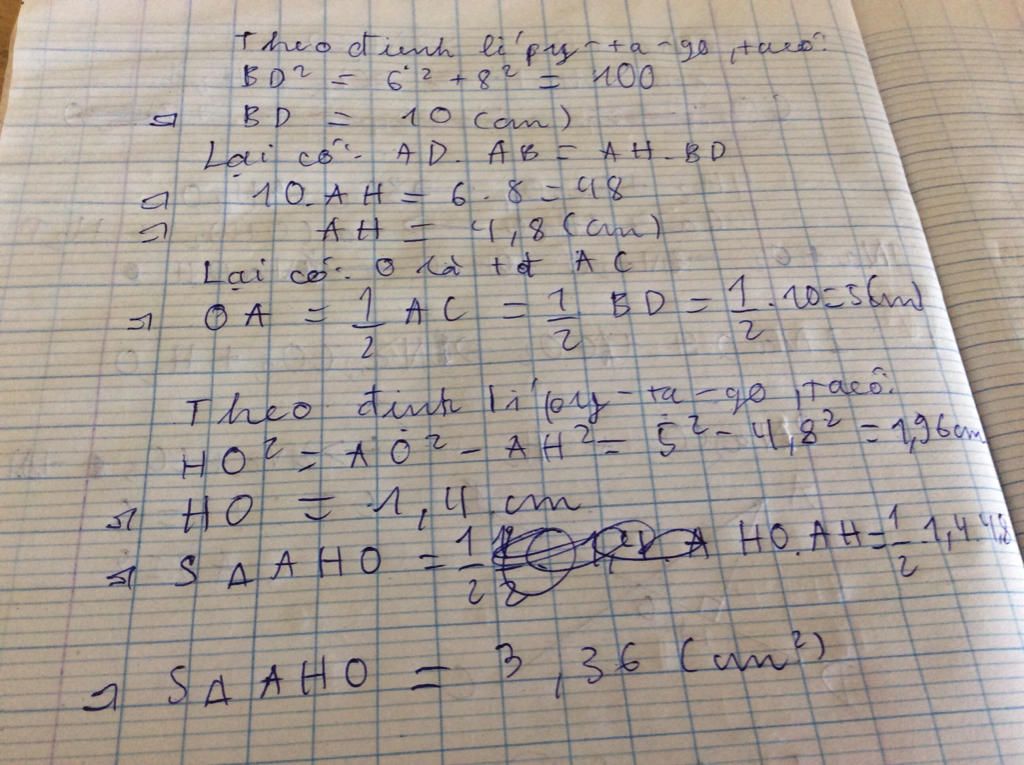 Theo định lí py-ta-go, ta có:
BD² = 6² + 8² = 100
⇒ BD = 10 (cm)
Lại có: AD. AB = AH. BD
⇒ 10. AH = 6 . 8 = 48
⇒ AH = 4,8 (cm)
Lại có: O là tđ AC
⇒ OA = 1/2 AC = 1/2 BD = 1/2 . 10 = 5 (cm)
Theo định lí py-ta-go, ta có:
HO² = AO² - AH² = 5² - 4,8² = 1,96 cm
⇒ HO = 1,4 cm
⇒ S Δ AHO = 1/2 HO. AH = 1/2 1,4. 4,8
⇒ S Δ AHO = 3,36 (cm²)